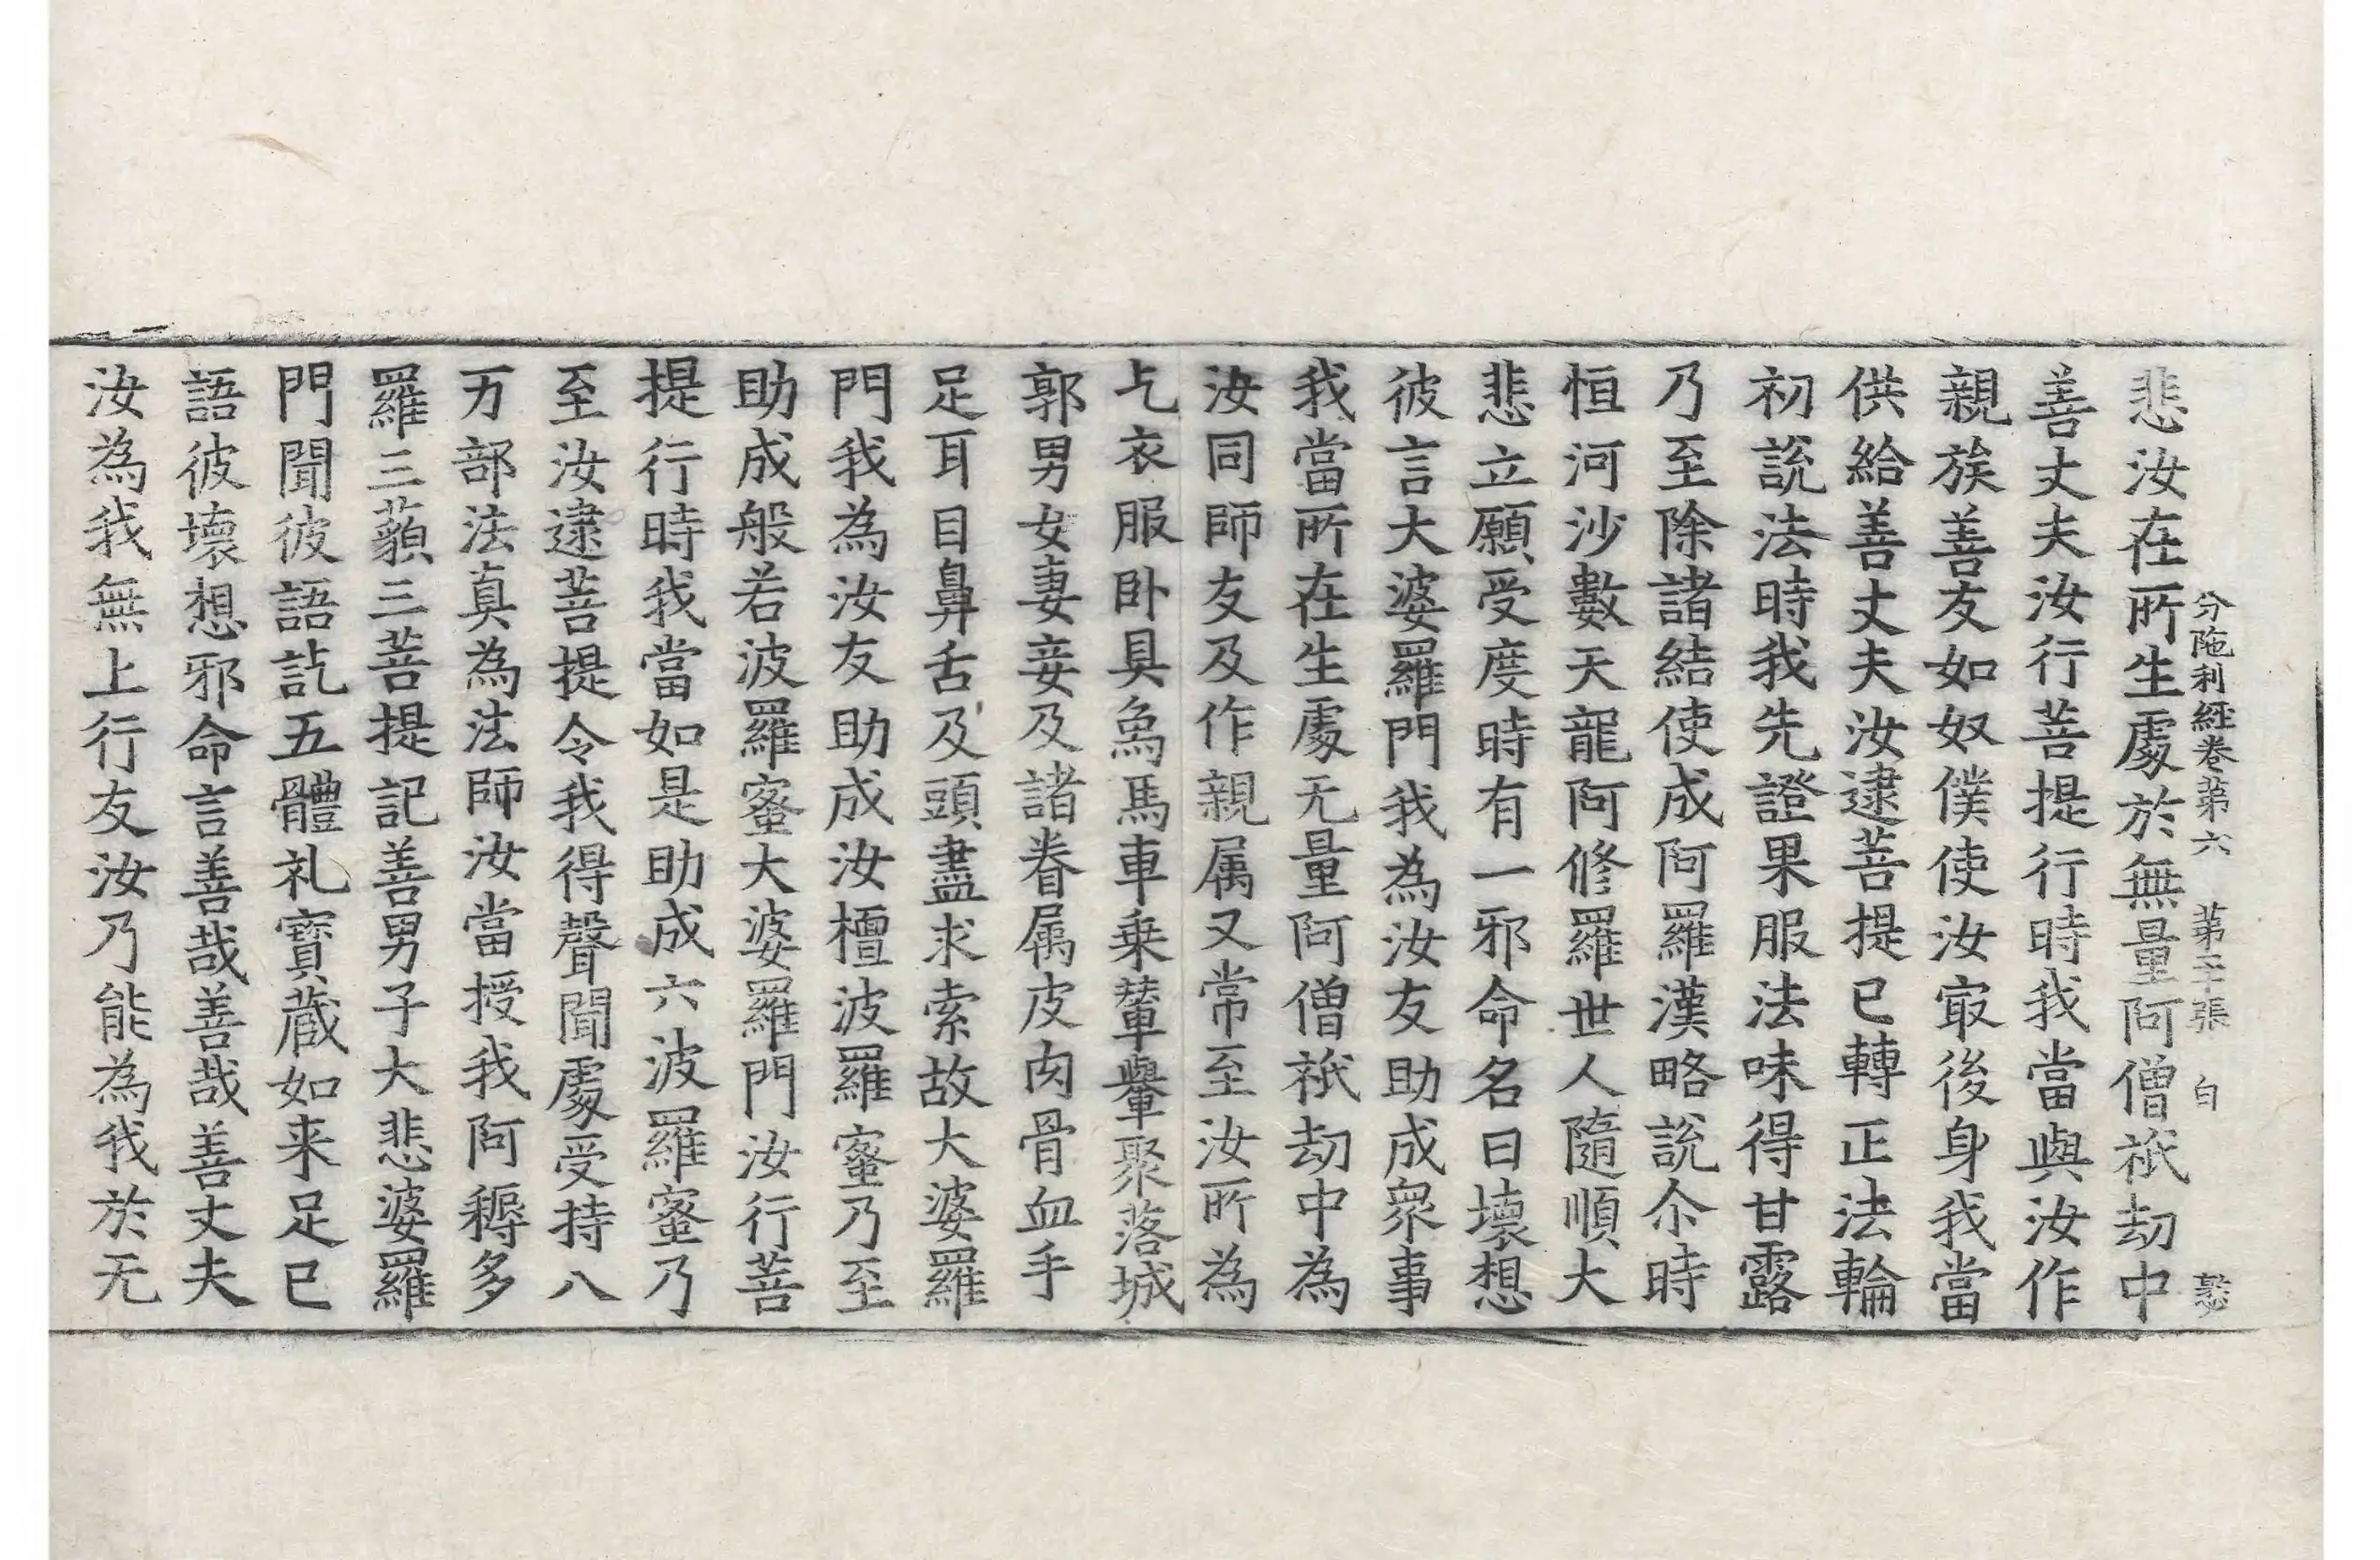 分陁利經卷第六 第二十張 白
悲汝在所生處於無量阿僧祇劫中
善丈夫汝行菩提行時我當與汝作
親族善友如奴僕使汝㝡後身我當
供給善丈夫汝逮菩提已轉正法輪
初說法時我先證果服法味得甘露
乃至除諸結使成阿羅漢略說尒時
恒河沙數天龍阿修羅世人隨順大
悲立願受度時有一邪命名曰壞想
彼言大婆羅門我為汝友助成衆事
我當所在生處无量阿僧祇劫中為
汝同師友及作親属又常至汝所為
乞衣服卧具象馬車乗輦轝聚落城
郭男女妻妾及諸眷属皮肉骨血手
足耳目鼻舌及頭盡求索故大婆羅
門我為汝友助成汝檀波羅蜜乃至
助成般若波羅蜜大婆羅門汝行菩
提行時我當如是助成六波羅蜜乃
至汝逮菩提令我得聲聞處受持八
万部法真為法師汝當授我阿耨多
羅三藐三菩提記善男子大悲婆羅
門聞彼語訖五體礼寶蔵如来足已
語彼壞想邪命言善哉善哉善丈夫
汝為我無上行友汝乃能為我於无